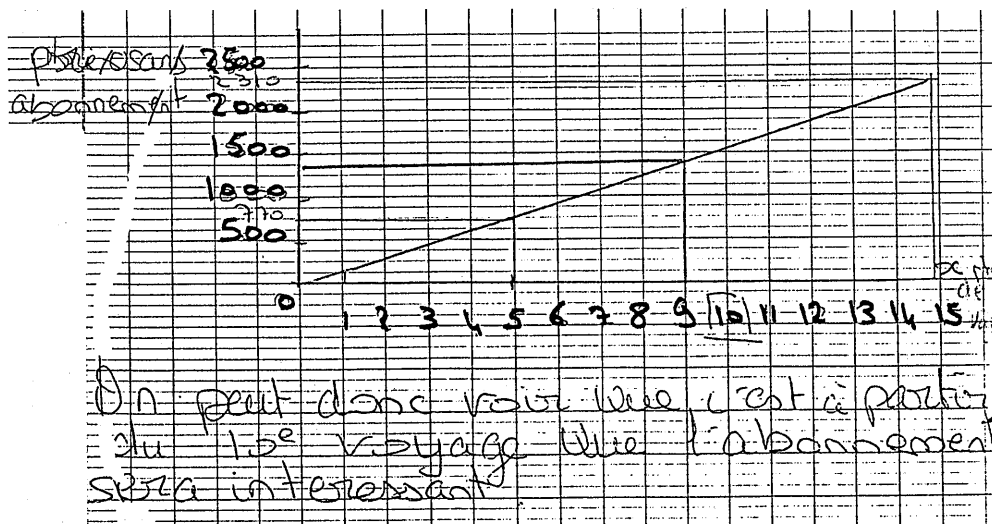 prix sans 2500
2310
abonnement 2000
1500
1000
770
500
0
1 2 3 4 5 6 7 8 9 10 11 12 13 14 15
On peut donc voir que c'est à partir
du 10e voyage que l'abonnement
sera interessant